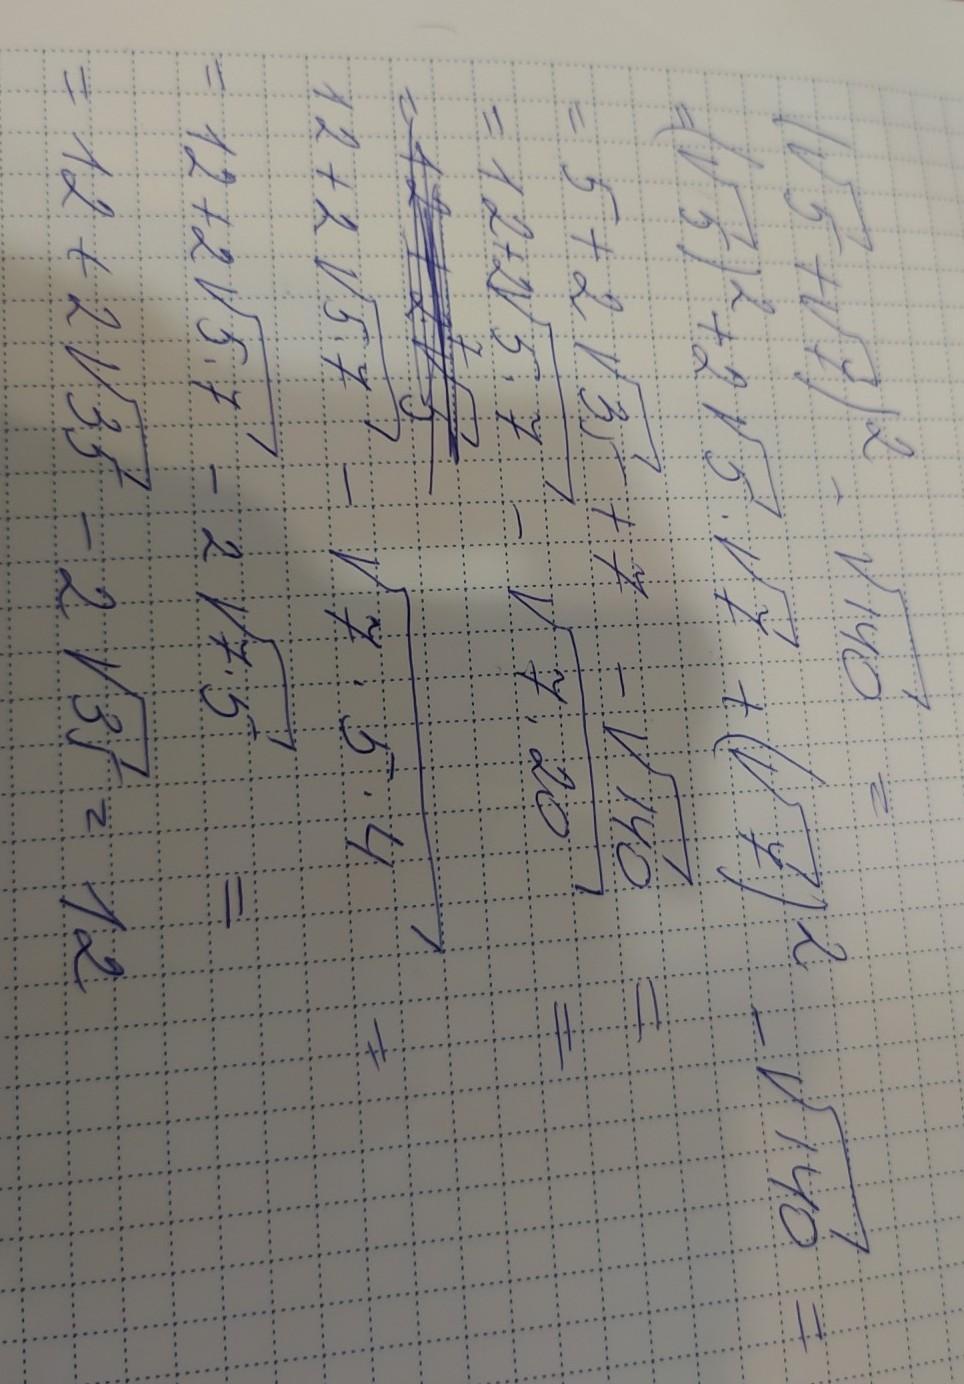 (√5+√7)² - √140 =
=(√5)²+2√5·√7+(√7)² - √140 =
= 5+2√35+7 - √140 =
= 12+2√5·7 - √7·20 =
=
12+2√5·7 - √7·5·4 =
= 12+2√5·7 - 2√7·5 =
= 12+2√35 - 2√35 = 12